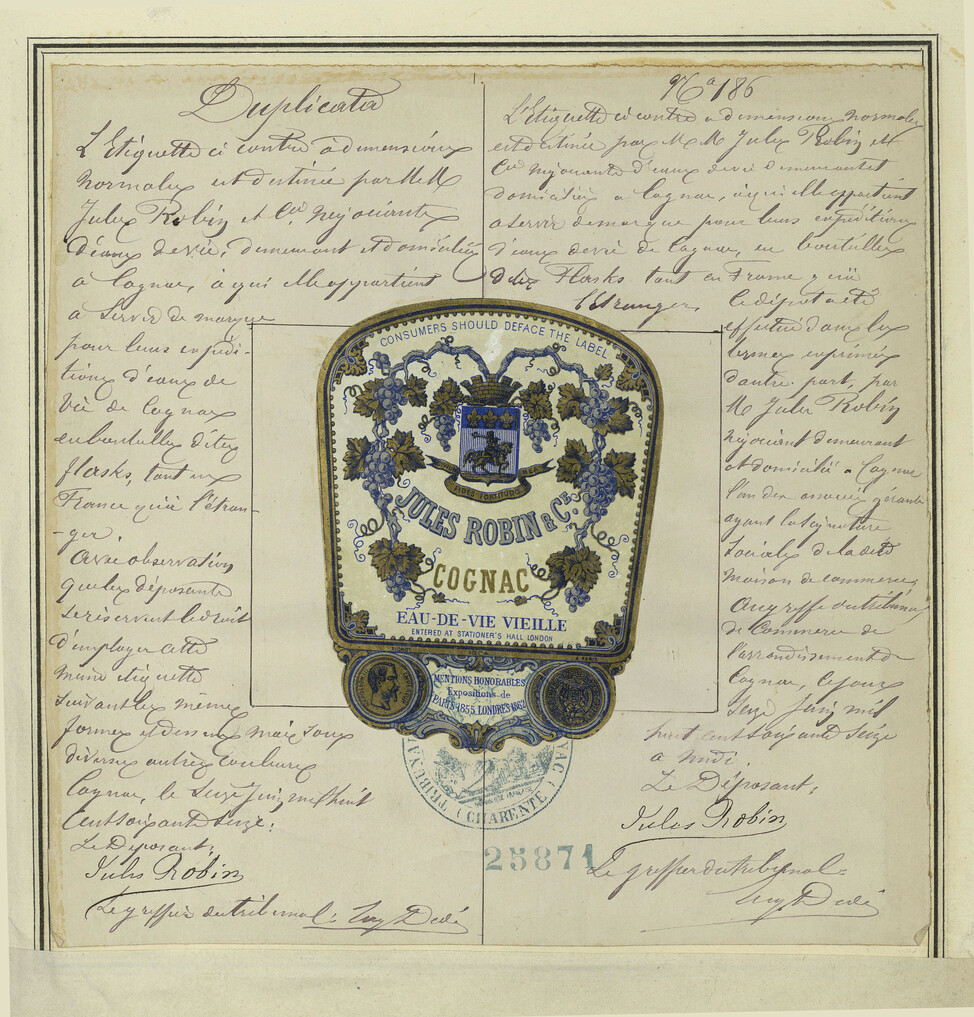 Duplicata
L'Etiquette ci contre a dimensions
normales est destinée par MM
Jules Robin et Cie négociants
d'eaux de vie, demeurant et domiciliés
a Cognac, à qui elle appartient
à servir de marque
pour leurs expédi-
tions d'eaux de
vie de Cognac
en bouteilles dites
flasks, tant en
France qu'à l'étran-
-ger.
Avec observation
que les déposants
se réservent le droit
d'employer cette
même étiquette
suivant les mêmes
formes et dessins mais sous
diverses autres couleurs
Cognac, le seize juin mil huit
cent soixante seize.
Le Déposant,
Jules Robin
Le greffier du tribunal:
No 186
L'Etiquette ci contre a dimensions normales
est destinée par MM Jules Robin et
Cie négociants d'eaux de vie demeurant et
domiciliés a Cognac, à qui elle appartient
a servir de marque pour leurs expéditions
d'eaux de vie de Cognac, en bouteilles
dites Flasks tant en France qu'à
l'étranger
Le dépot a été
effectué dans les
termes exprimés
d'autre part, par
M Jules Robin
négociant demeurant
et domicilié a Cognac
l'un des associés gérants
ayant la signature
sociale de la dite
maison de commerce
au greffe du tribunal
de Commerce de
l'arrondissement de
Cognac, ce jour
seize juin mil
huit cent soixante seize
a midi.
Le Déposant,
Jules Robin
Le greffier du tribunal:
CONSUMERS SHOULD DEFACE THE LABEL
FIDES FORTITUDO
JULES ROBIN & Cie.
COGNAC
EAU-DE-VIE VIEILLE
ENTERED AT STATIONER'S HALL LONDON
MENTIONS HONORABLES
Expositions de
PARIS 1855, LONDRES 1862
(CHARENTE)
25871